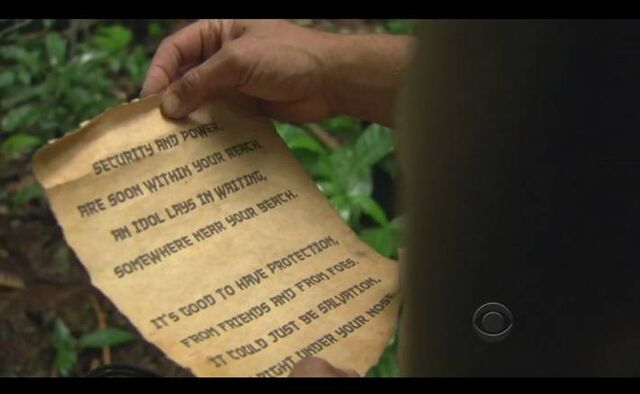 SECURITY AND POWER,
ARE SOON WITHIN YOUR REACH.
AN IDOL LAYS IN WAITING,
SOMEWHERE NEAR YOUR BEACH.
IT'S GOOD TO HAVE PROTECTION,
FROM FRIENDS AND FROM FOES.
IT COULD JUST BE SALVATION.
RIGHT UNDER YOUR NOSE